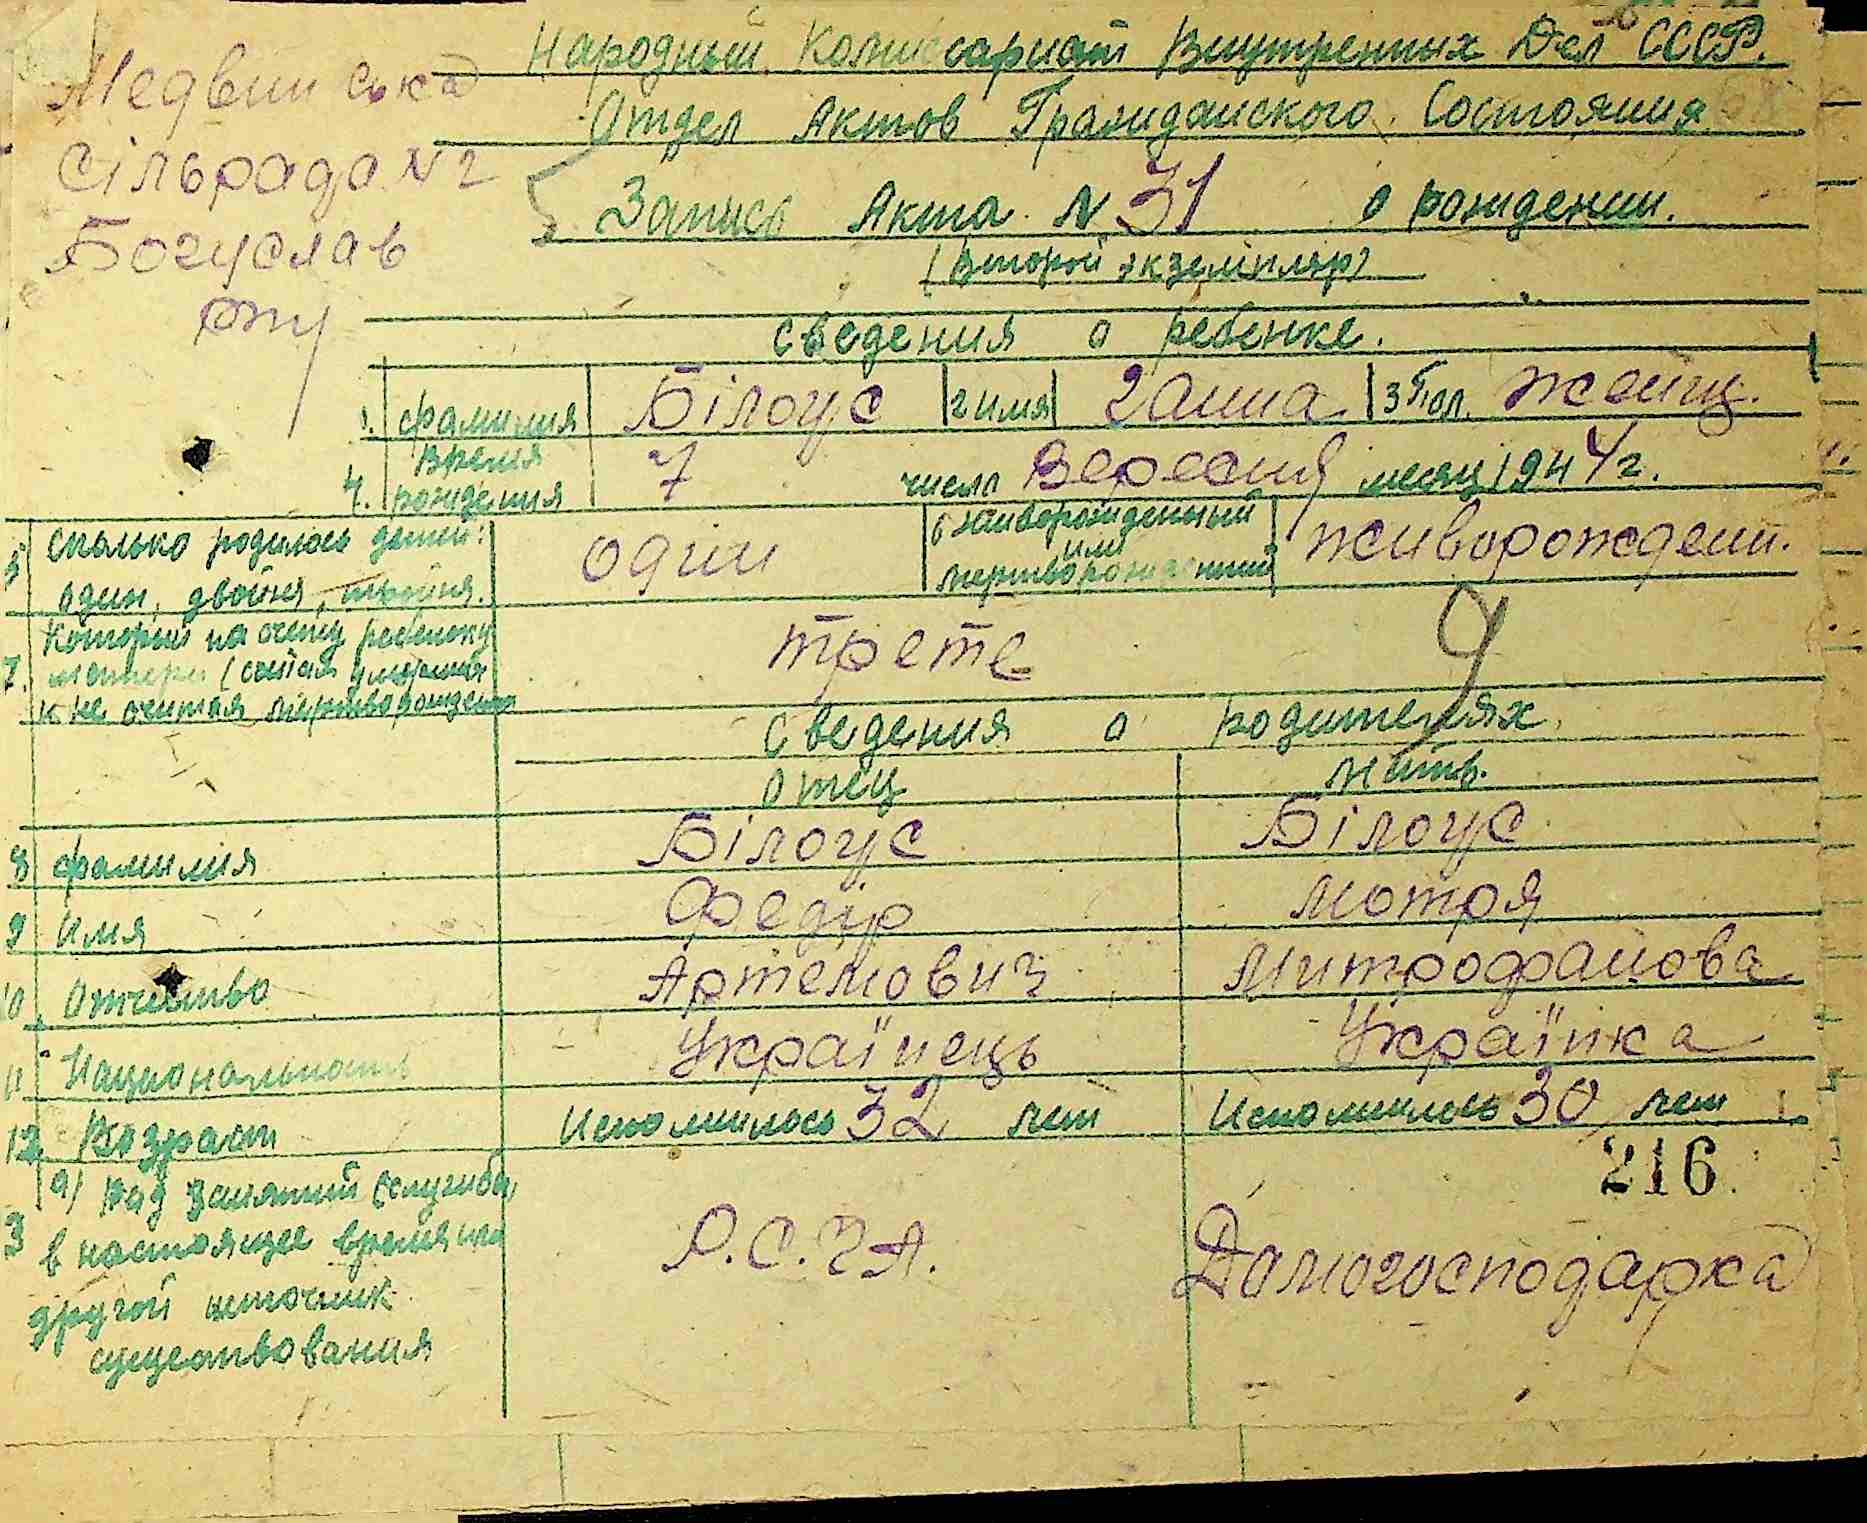 Медвинська
сільрада №2
Богуслав
р-ну
Народный Комиссариат Внутренных Дел СССР.
Отдел Актов Гражданского Состояния
Запись Акта № 31 о рождении.
(Второй экземпляр)
Сведения о ребенке.
1. фамилия Білоус 2 имя Ганна 3 Пол. Жоінц.
4. Время рождения 7 число Вересня месяц 1944 г.
5 Сколько родилось детей: один, двойня, тройня. один 6 живорожденный или мертворожденный живорожденн.
7. Который по счету ребенок у матери (считая умерших и не считая мертворожденных трете
Сведения о родителях.
Отец Мать.
8 фамилия Білоус Білоус
9 Имя Федір Мотря
10 Отчество Артемович Митрофанова
11 Национальность Українець Українка
12 Возраст Исполнилось 32 лет Исполнилось 30 лет
216
а) Род занятий (служба)
3 в настоящее время или
другой источник
существования
Р.С.Ч.А. Домогосподарка